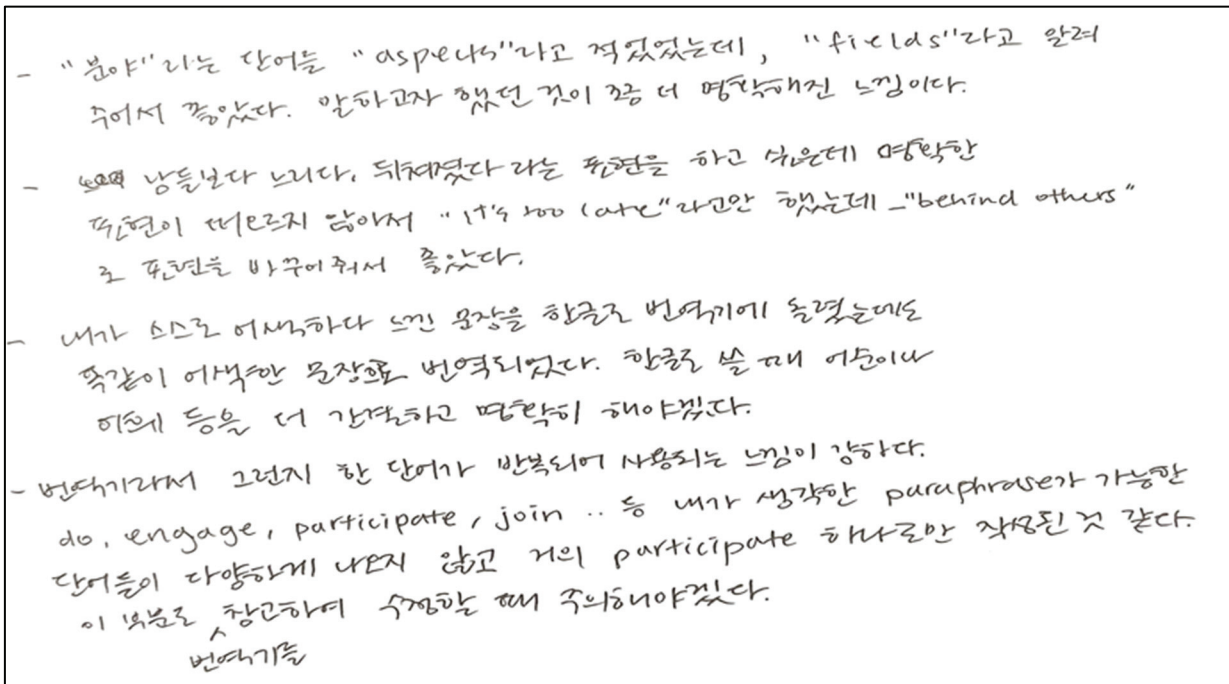 - "분야"라는 단어를 "aspects"라고 적었었는데, "fields"라고 알려
주어서 좋았다. 말하고자 했던 것이 조금 더 명확해진 느낌이다.
- 남들보다 느리다, 뒤쳐졌다 라는 표현을 하고 싶은데 명확한
표현이 떠오르지 않아서 "it's too late"라고만 했는데 - "behind others"
로 표현을 바꾸어줘서 좋았다.
- 내가 스스로 어색하다 느낀 문장을 한글로 번역기에 돌렸는데도
똑같이 어색한 문장으로 번역되었다. 한글로 쓸 때 어순이나
어휘 등을 더 간결하고 명확히 해야겠다.
- 번역기라서 그런지 한 단어가 반복되어 사용되는 느낌이 강하다.
do, engage, participate, join .. 등 내가 생각한 paraphrase가 가능한
단어들이 다양하게 나오지 않고 거의 participate 하나로만 작성된 것 같다.
이 부분로 참고하여 수정할 때 주의해야겠다.
번역기를